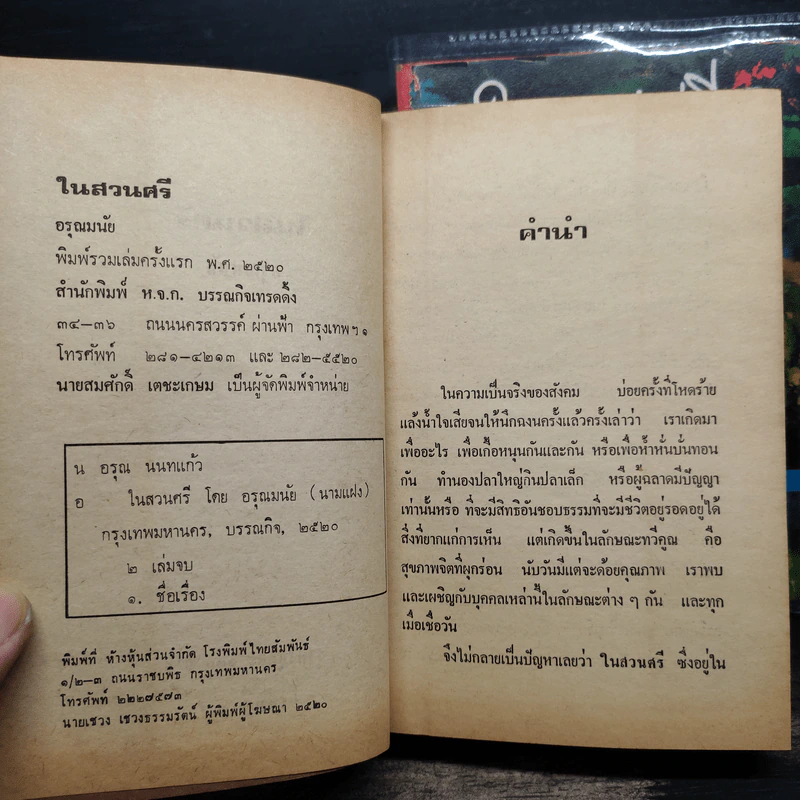 ในสวนศรี
อรุณมนัย
พิมพ์รวมเล่มครั้งแรก พ.ศ. ๒๕๒๐
สำนักพิมพ์ ห.จ.ก. บรรณกิจเทรดดิ้ง
๓๔–๓๖ ถนนนครสวรรค์ ผ่านฟ้า กรุงเทพฯ ๑
โทรศัพท์ ๒๘๑–๔๒๑๓ และ ๒๘๒–๕๕๒๐
นายสมศักดิ์ เตชะเกษม เป็นผู้จัดพิมพ์จำหน่าย
น อรุณ นนทแก้ว
อ ในสวนศรี โดย อรุณมนัย (นามแฝง)
กรุงเทพมหานคร, บรรณกิจ, ๒๕๒๐
๒ เล่มจบ
๑. ชื่อเรื่อง
พิมพ์ที่ ห้างหุ้นส่วนจำกัด โรงพิมพ์ไทยสัมพันธ์
๑/๒–๓ ถนนราชบพิธ กรุงเทพมหานคร
โทรศัพท์ ๒๒๒๗๕๗๓
นายเชวง เชวงธรรมรัตน์ ผู้พิมพ์ผู้โฆษณา ๒๕๒๐
คำนำ
ในความเป็นจริงของสังคม บ่อยครั้งที่โหดร้าย
แล้งน้ำใจเสียจนให้นึกฉงนครั้งแล้วครั้งเล่าว่า เราเกิดมา
เพื่ออะไร เพื่อเกื้อหนุนกันและกัน หรือเพื่อห้ำหั่นบั่นทอน
กัน ทำนองปลาใหญ่กินปลาเล็ก หรือผู้ฉลาดมีปัญญา
เท่านั้นหรือ ที่จะมีสิทธิอันชอบธรรมที่จะมีชีวิตอยู่รอดอยู่ได้
สิ่งที่ยากแก่การเห็น แต่เกิดขึ้นในลักษณะทวีคูณ คือ
สุขภาพจิตที่ผุกร่อน นับวันมีแต่จะด้อยคุณภาพ เราพบ
และเผชิญกับบุคคลเหล่านี้ในลักษณะต่าง ๆ กัน และทุก
เมื่อเชื่อวัน
จึงไม่กลายเป็นปัญหาเลยว่า ในสวนศรี ซึ่งอยู่ใน